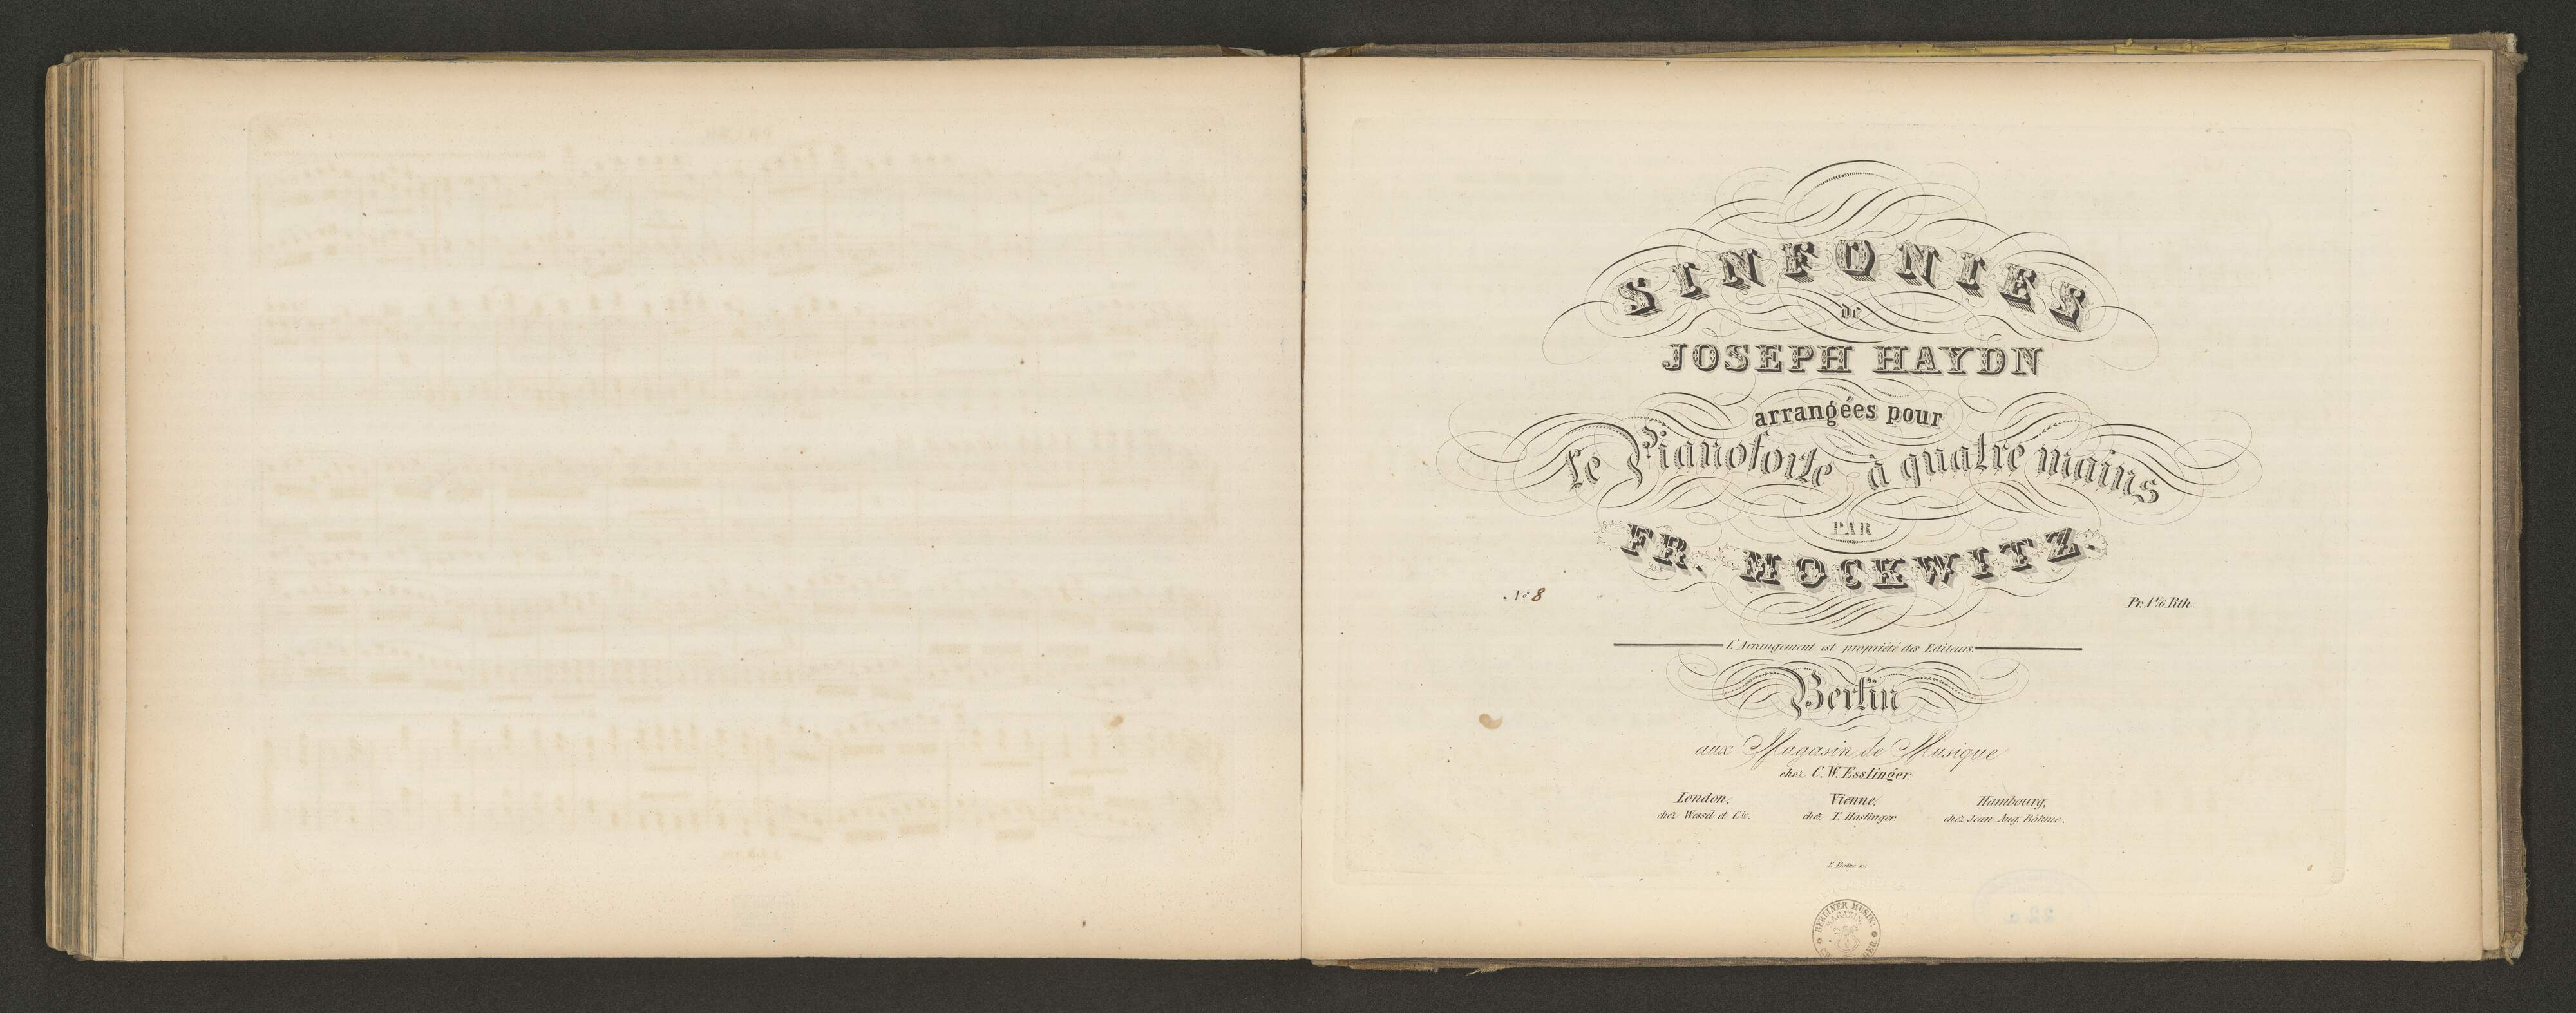 SINFONIES
de
JOSEPH HAYDN
arrangées pour
le Pianoforte à quatre mains
PAR
FR. MOCKWITZ.
No. 8
Pr. 1 1/6 Rth.
L'Arrangement est propriété des Editeurs.
Berlin
aux Magasin de Musique
chez C. W. Esslinger.
London, Vienne, Hambourg,
chez Wessel et Cie. chez T. Haslinger. chez Jean Aug. Böhme.
E. Bothe
BERLINER MUSIK
MAGAZIN